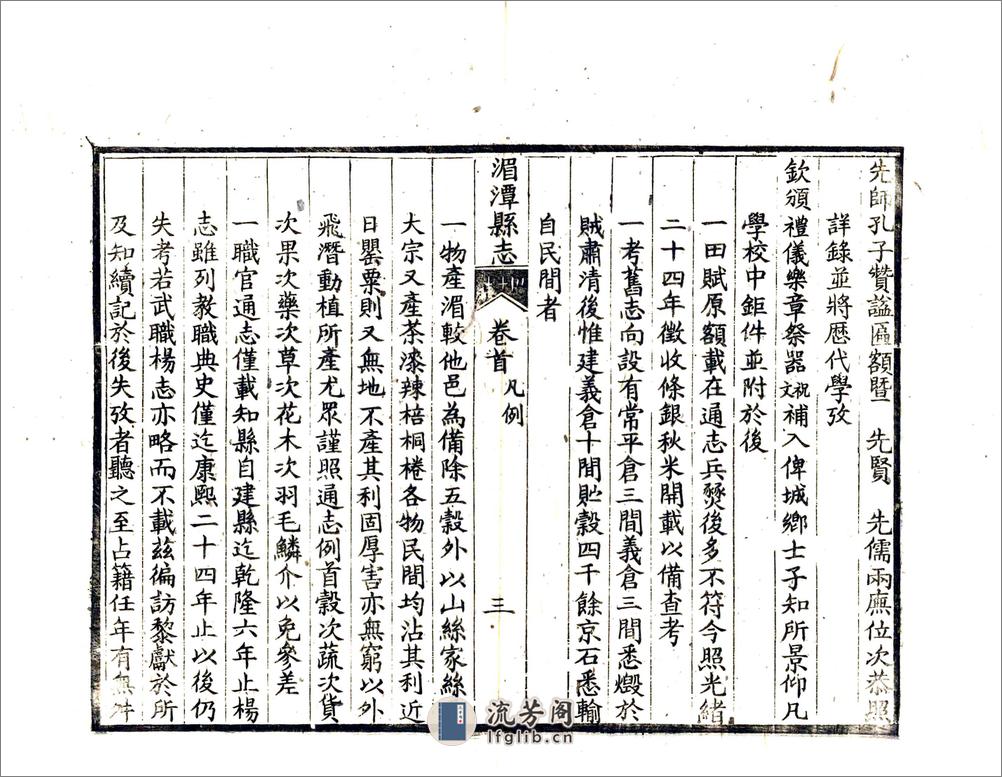 先師孔子贊謚匾額暨　先賢　先儒兩廡位次恭照
詳錄並將歷代學攷
欽頒禮儀樂章祭器祝文補入俾城鄉士子知所景仰凡
學校中鉅件並附於後
一田賦原額載在通志兵燹後多不符今照光緒
二十四年徵收條銀秋米開載以備查考
一考舊志向設有常平倉三間義倉三間悉燬於
賊肅清後惟建義倉十間貯穀四千餘京石悉輸
自民間者
湄潭縣志
卷首　凡例
三
一物產湄較他邑為備除五穀外以山絲家絲
大宗又產茶漆辣棓桐棬各物民間均沾其利近
日罌粟則又無地不產其利固厚害亦無窮以外
飛潛動植所產尤眾謹照通志例首穀次蔬次貨
次果次藥次草次花木次羽毛鱗介以免參差
一職官通志僅載知縣自建縣迄乾隆六年止楊
志雖列教職典史僅迄康熙二十四年止以後仍
失考若武職楊志亦略而不載茲徧訪黎獻於所
及知續記於後失攷者聽之至占籍任年有無
流芳阁
lfglib.cn